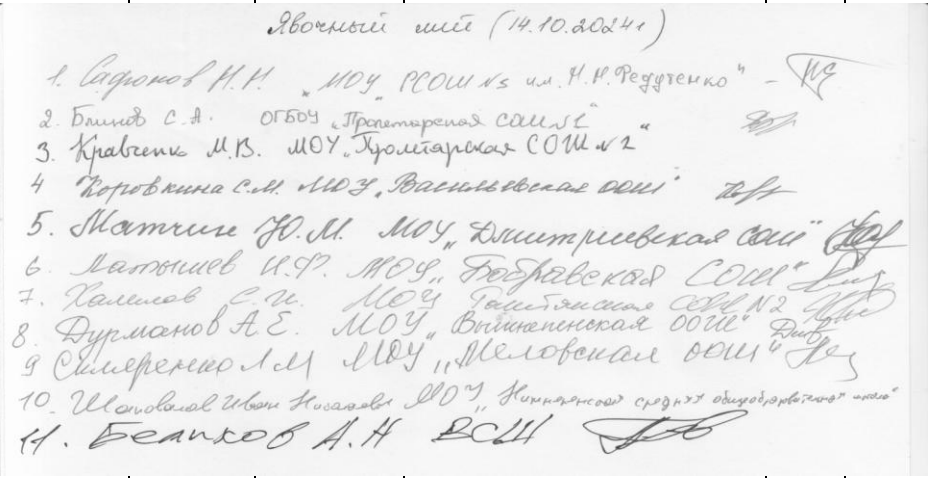 Явочный лист (14.10.2024г)
1. Сафонов Н.Н. „МОУ РСОШ №5 им. Н.Н. Федутенко" -
2. Блинов С.А. ОГБОУ „Пролетарская СОШ №1"
3. Кравченко М.В. МОУ „Пролетарская СОШ №2"
4 Коровкина С.М. МОУ „Васильевская ООШ"
5. Матчин Ю.М. МОУ „Дмитриевская СОШ"
6. Латышев И.Ф. МОУ „Бобравская СОШ"
7. Халилов С.И. МОУ СОШ №2
8. Дурманов А.Е. МОУ „Вышнепенская ООШ"
9 Скляренко Л М МОУ „Меловская ООШ"
10. Шаповалов Иван МОУ „Нижнепенская средняя общеобразовательная школа"
11. Беликов А.Н ВСШ